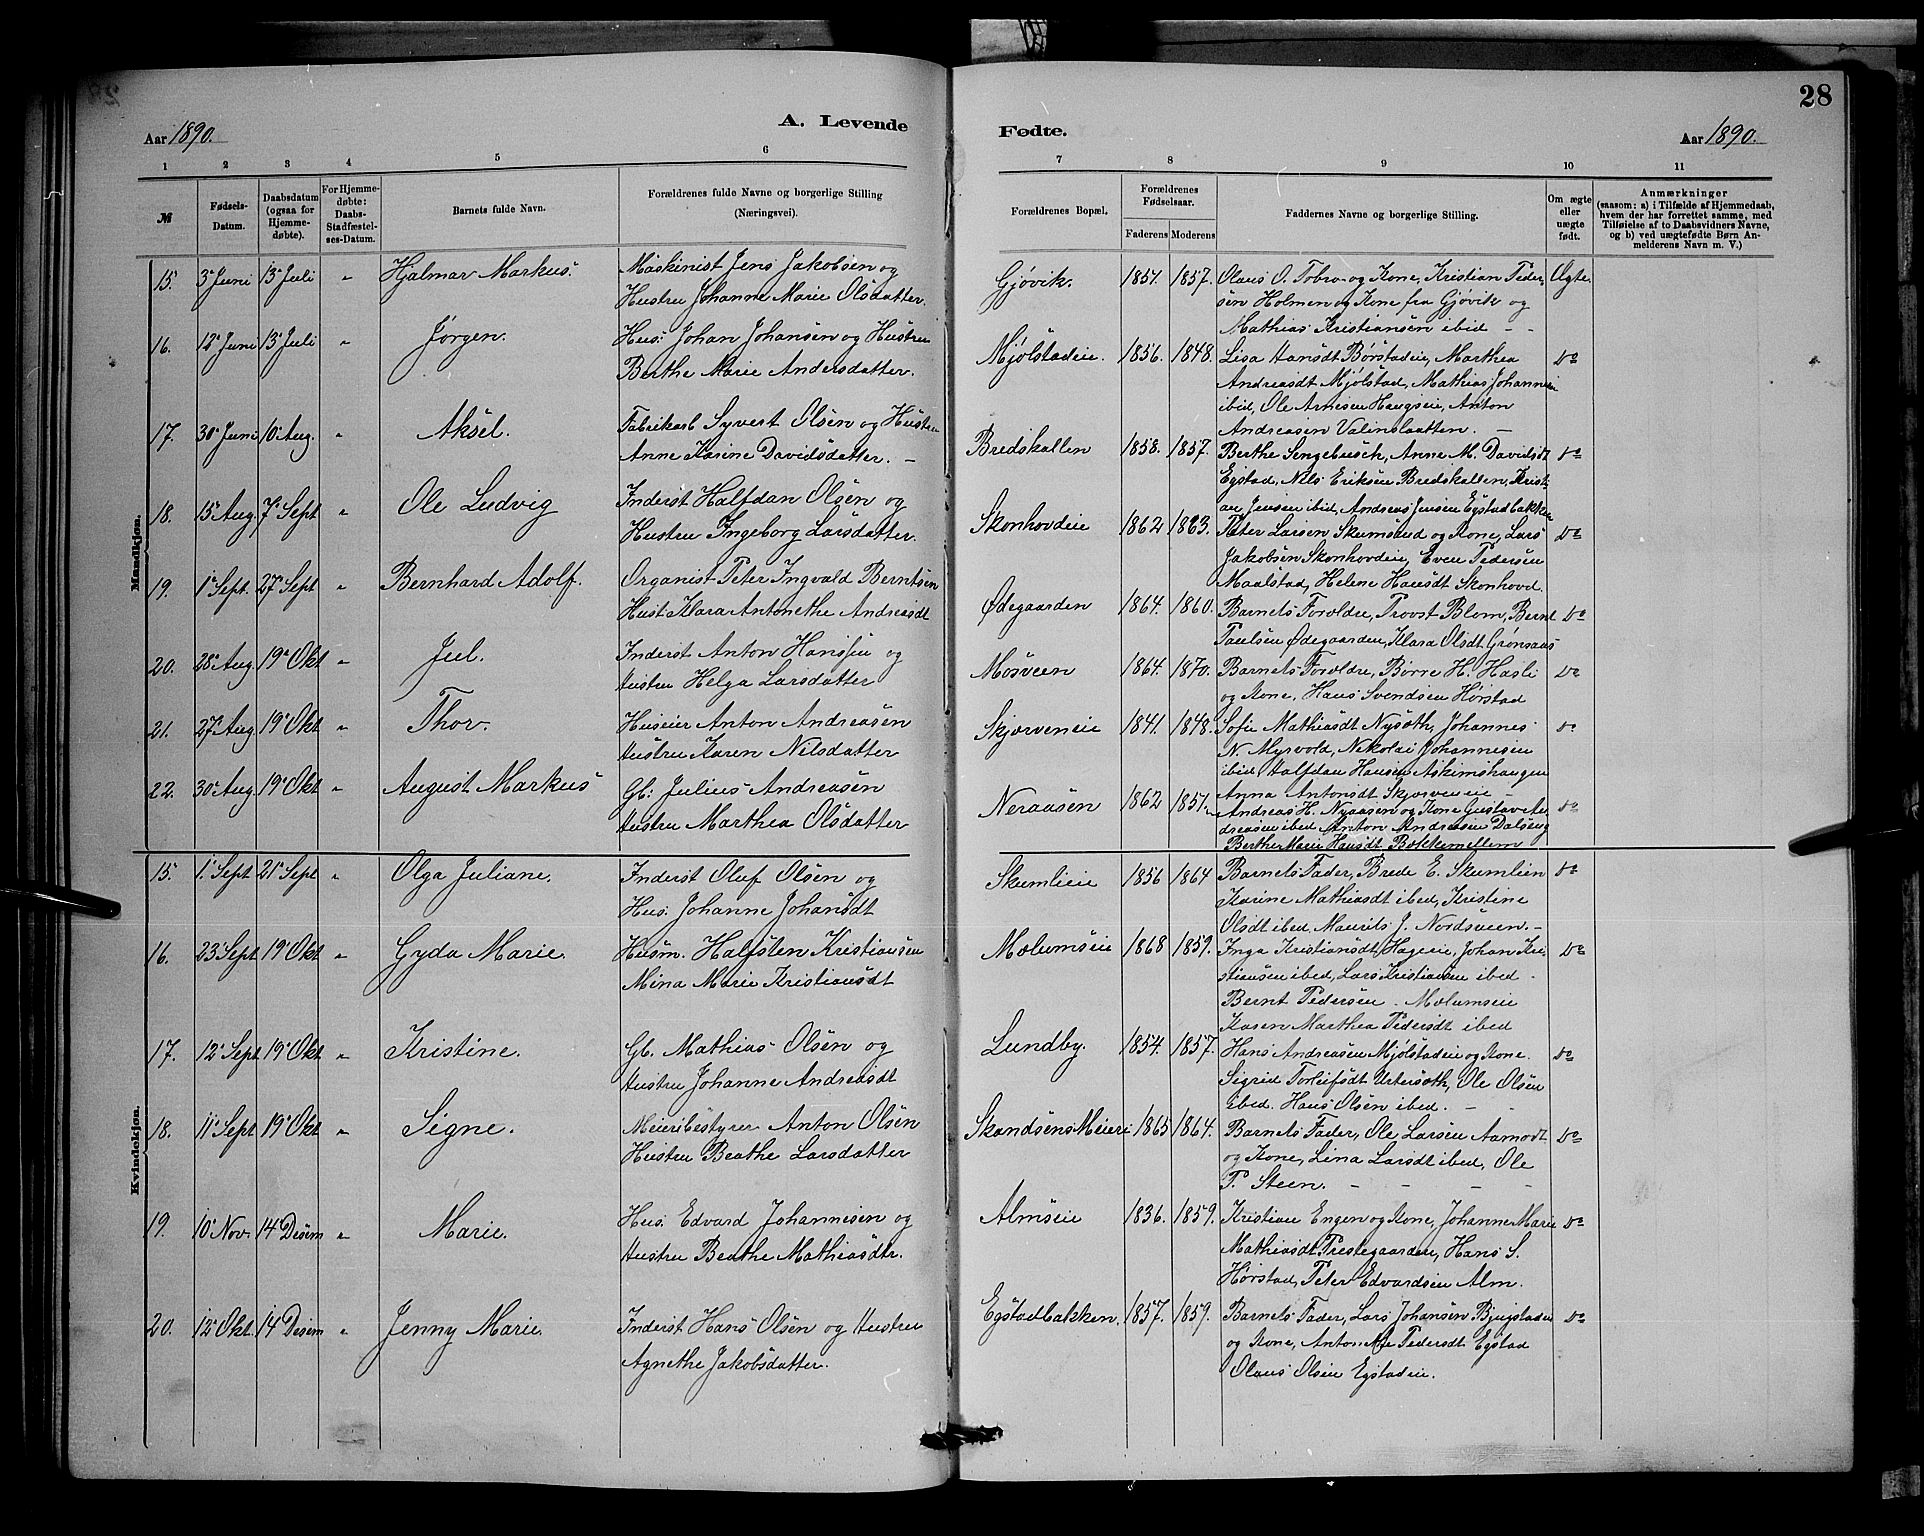 28
Aar 1890.
A. Levende
1 2 3 4 5 6
№
Fødsels-Datum.
Daabsdatum (ogsaa for Hjemme-døbte).
For Hjemme-døbte: Daabs-Stadfæstel-ses-Datum.
Barnets fulde Navn.
Forældrenes fulde Navne og borgerlige Stilling (Næringsvei).
Mandkjøn.
15. 3' Juni 13' Juli " Hjalmar Markus. Maskinist Jens Jakobsen og
Hustru Johanne Marie Olsdatter.
16. 12' Juni 13' Juli " Jørgen. Hus: Johan Johansen og Hustru
Berthe Marie Andersdatter.
17. 30' Juni 10' Aug. " Aksel. Fabrikarb Syvert Olsen og Hustru
Anne Karine Davidsdatter. –
18. 15' Aug. 7' Sept " Ole Ludvig Inderst Halfdan Olsen og
Hustru Ingeborg Larsdatter.
19. 1' Sept. 27' Sept " Bernhard Adolf. Organist Peter Ingvald Berntsen
Hust. Klara Antonethe Andreasdt
20. 28' Aug. 19' Okt " Jul. Inderst Anton Hansen og
Hustru Helga Larsdatter
21. 27' Aug 19' Okt " Thor. Huseier Anton Andreasen
Hustru Karen Nilsdatter
22. 30' Aug. 19' Okt " August Markus Gb: Julius Andreasen
Hustru Marthea Olsdatter
Kvindekjøn.
15. 1' Sept 21' Sept " Olga Juliane. Inderst Oluf Olsen og
Hus. Johanne Johansdt
16. 23' Sept 19' Okt " Gyda Marie. Husm. Halfsten Kristiansen
Mina Marie Kristiansdt
17. 12' Sept 19' Okt " Kristine. Gb. Mathias Olsen og
Hustru Johanne Andreasdt
18. 11' Sept 19' Okt " Signe. Meieribestyrer Anton Olsen
Hustru Beathe Larsdatter
19. 10' Nov. 14 Desem " Marie. Hus: Edvard Johannesen og
Hustru Beathe Mathiasdtr.
20. 12' Okt. 14 Desem " Jenny Marie. Inderst Hans Olsen og Hustru
Agnethe Jakobsdatter.
Fødte.
Aar 1890.
7 8 9 10 11
Forældrenes Bopæl.
Forældrenes Fødselsaar.
Faderens Moderens
Faddernes Navne og borgerlige Stilling.
Om ægte eller uægte født.
Anmærkninger
(saasom: a) i Tilfælde af Hjemmedaab,
hvem der har forrettet samme, med
Tilføielse af to Daabsvidners Navne,
og b) ved uægtefødte Børn An-
melderens Navn m. V.)
Gjøvik. 1857. Olaus O. Tobro og Kone, Kristian Peder- Ægte.
sen Holmen og Kone fra Gjøvik og
Mathias Kristiansen ibid – –
Mjølstadeie. 1856. 1848. Lisa Hansdt Børstadeie, Marthea Do
Andreasdt Mjølstad, Mathias Johannesen
ibid, Ole Arnesen Haugseie, Anton
Andreasen –
Bredskallen 1858. 1857. Berthe Sengebusch, Anne M. Davidsdt Do
Egstad, Nils Eriksen Bredskallen, Krist-
an Jensen ibid, Andreas Jensen Egstadbakken
Skonhovdeie 1862 1863. Peter Larsen Skumstad og Kone, Lars Do
Jakobsen Skonhovdeie, Even Pedersen
Maalstad, Helene Hansdt Skonhovd.
Ødegaarden 1864. 1860. Barnets Forældre, Provst Blom, Bernt Do
Paulsen Ødegaarden, Klara Olsdt Grønsaas
Mosveen 1864. 1870. Barnets Forældre, Børre H. Hasli Do
og Kone, Hans Svendsen Hørstad
Skjerveneie 1841. 1848. Sofie Mathiasdt Nyseth, Johannes Do
N. Myrvold, Nikolai Johannesen
ibid Halfdan Hansen Askimshaugen
Anna Antonsdt Skjerveneie –
Neraasen 1862 Andreas H. Nyaasen og Kone Gustav An- Do
dreasen ibed Anton Andreasen Dalseng
Berthe Marie Hansdt Bækkemellem
Skumlieie 1856 1864 Barnets Fader, Brede E. Skumlien Do
Karine Mathiasdt ibed, Kristine
Olsdt ibed, Maurits J. Nordsveen. –
Mælumseie 1868 1859. Inga Kristiansdt Hageeie, Johan Kri- Do
stiansen ibed, Lars Kristiansen ibed –
Bernt Pedersen – Mælumseie
Karen Marthea Pedersdt ibed
Lundby. 1854. 1857. Hans Andreasen Mjølstadeie og Kone. Do
Sigrid Torleifsdt Ole Olsen
ibed. Hans Olsen ibed. – –
Skandsens Meieri 1865 1864. Barnets Fader, Ole Larsen Aamodt Do
og Kone, Lina Larsdt ibed, Ole
P. Steen. – – – –
Almseie 1836. 1859. Kristian Engen og Kone, Johanne Marie Do
Mathiasdt Prestegaarden, Hans S.
Hørstad, Peter Edvardsen Alm.
Egstadbakken. 1857. 1859. Barnets Fader, Lars Johansen Bjugstadeie Do
og Kone, Pedersdt Egstad
Olaus Olsen Egstadeie.